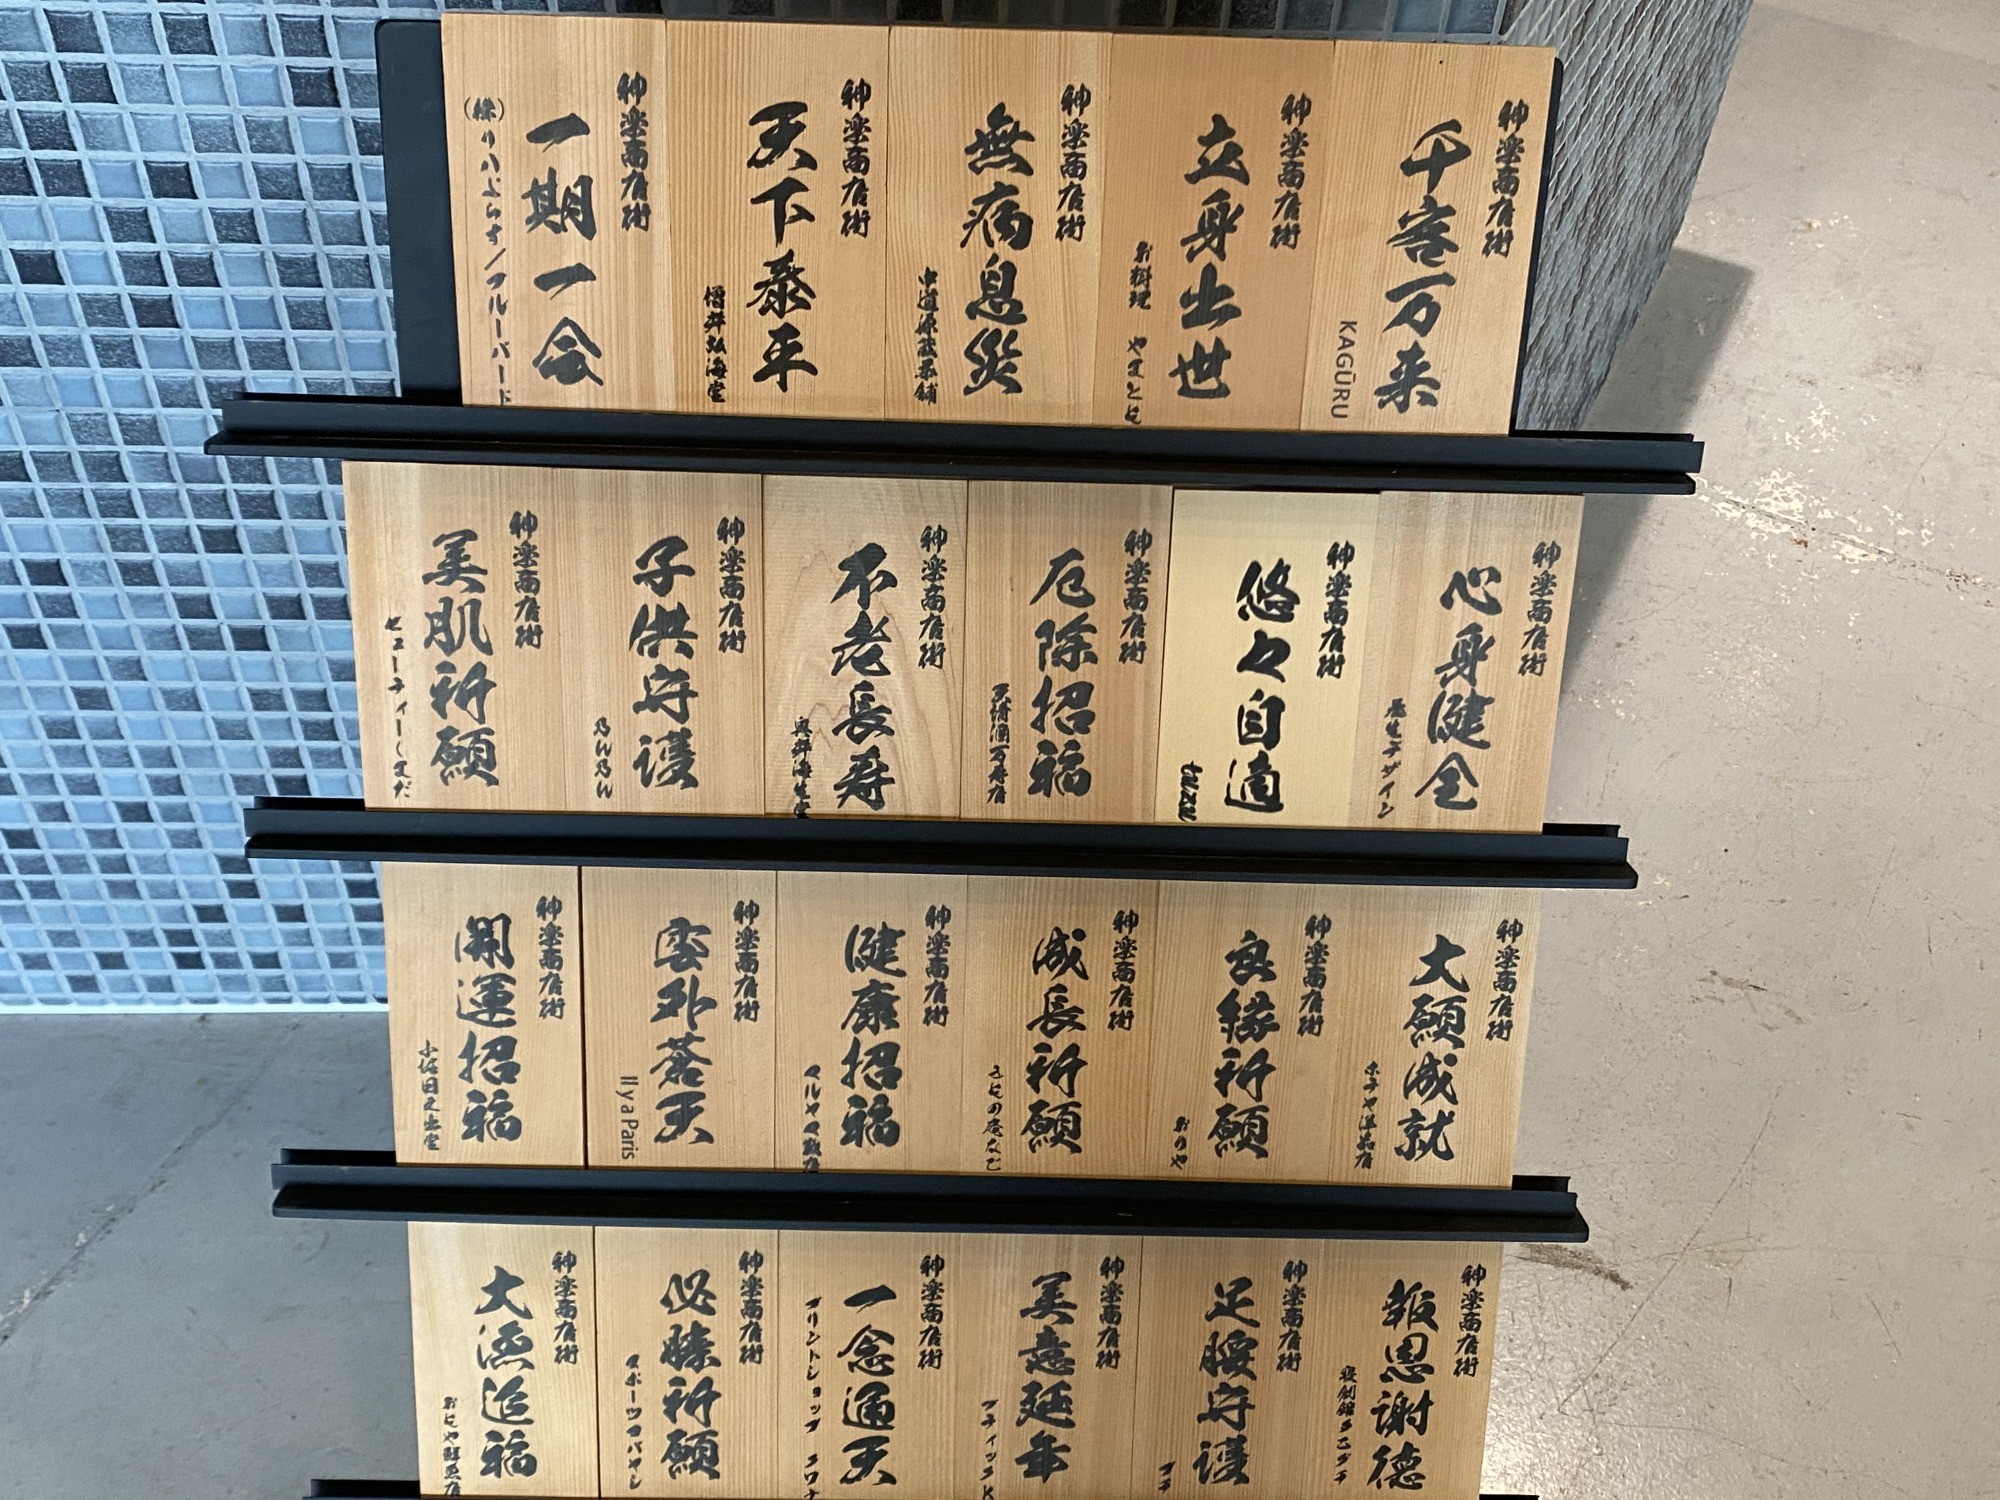 神楽商店街
千客万来
KAGŪRU
神楽商店街
立身出世
お料理 やまとも
神楽商店街
無病息災
中道源蔵茶舗
神楽商店街
天下泰平
増井弘海堂
神楽商店街
一期一会
(株)りんぶらす/ブルーバード
神楽商店街
心身健全
デザイン
神楽商店街
悠々自適
tuzu
神楽商店街
厄除招福
天晴酒万寿店
神楽商店街
不老長寿
奥井海生堂
神楽商店街
子供守護
乃ん乃ん
神楽商店街
美肌祈願
ビューティーくまだ
神楽商店街
大願成就
ホチヤ洋品店
神楽商店街
良縁祈願
おりや
神楽商店街
成長祈願
神楽商店街
健康招福
神楽商店街
雲外蒼天
Il y a Paris
神楽商店街
開運招福
小堀日之出堂
神楽商店街
報恩謝徳
神楽商店街
足腰守護
プチ
神楽商店街
美意延年
ブティックK
神楽商店街
一念通天
プリントショップ
神楽商店街
必勝祈願
スポーツコバヤシ
神楽商店街
大漁追福